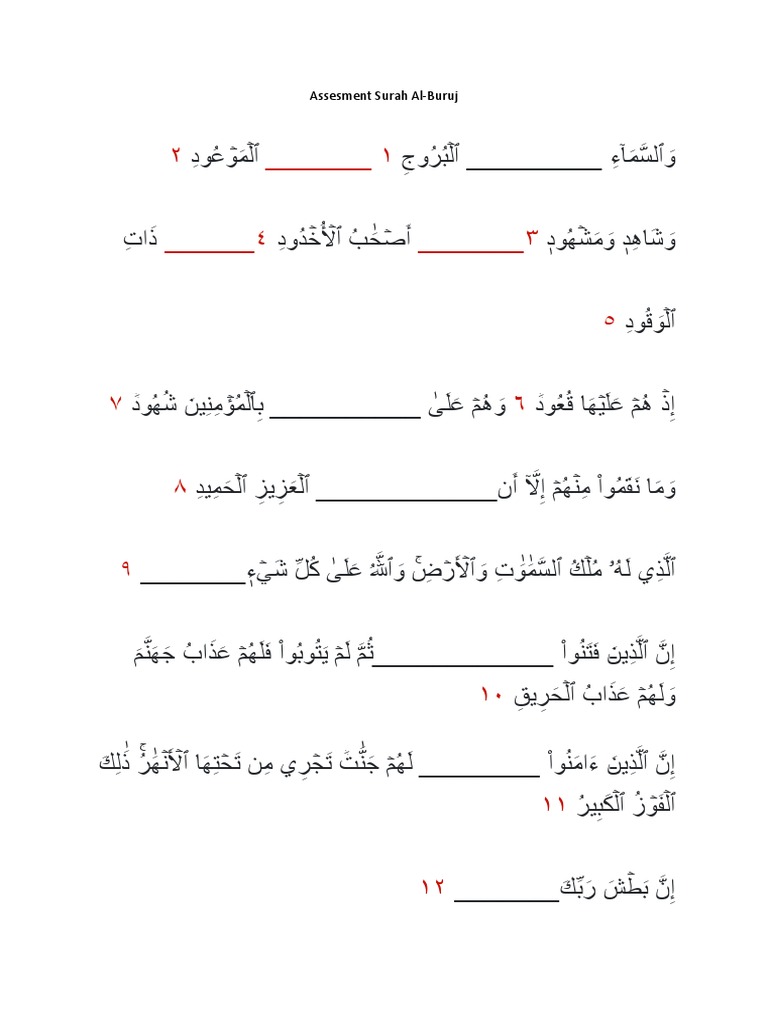 Assesment Surah Al-Buruj
وَٱلسَّمَآءِ __________ ٱلۡبُرُوجِ ١ ________ ٱلۡمَوۡعُودِ ٢
وَشَاهِدٖ وَمَشۡهُودٖ ٣________ أَصۡحَٰبُ ٱلۡأُخۡدُودِ ٤_______ ذَاتِ
ٱلۡوَقُودِ ٥
إِذۡ هُمۡ عَلَيۡهَا قُعُودٞ ٦ وَهُمۡ عَلَىٰ ___________ بِٱلۡمُؤۡمِنِينَ شُهُودٞ ٧
وَمَا نَقَمُواْ مِنۡهُمۡ إِلَّآ أَن_____________ ٱلۡعَزِيزِ ٱلۡحَمِيدِ ٨
ٱلَّذِي لَهُۥ مُلۡكُ ٱلسَّمَٰوَٰتِ وَٱلۡأَرۡضِۚ وَٱللَّهُ عَلَىٰ كُلِّ شَيۡءٖ________ ٩
إِنَّ ٱلَّذِينَ فَتَنُواْ _____________ثُمَّ لَمۡ يَتُوبُواْ فَلَهُمۡ عَذَابُ جَهَنَّمَ
وَلَهُمۡ عَذَابُ ٱلۡحَرِيقِ ١٠
إِنَّ ٱلَّذِينَ ءَامَنُواْ _________ لَهُمۡ جَنَّٰتٞ تَجۡرِي مِن تَحۡتِهَا ٱلۡأَنۡهَٰرُۚ ذَٰلِكَ
ٱلۡفَوۡزُ ٱلۡكَبِيرُ ١١
إِنَّ بَطۡشَ رَبِّكَ________ ١٢